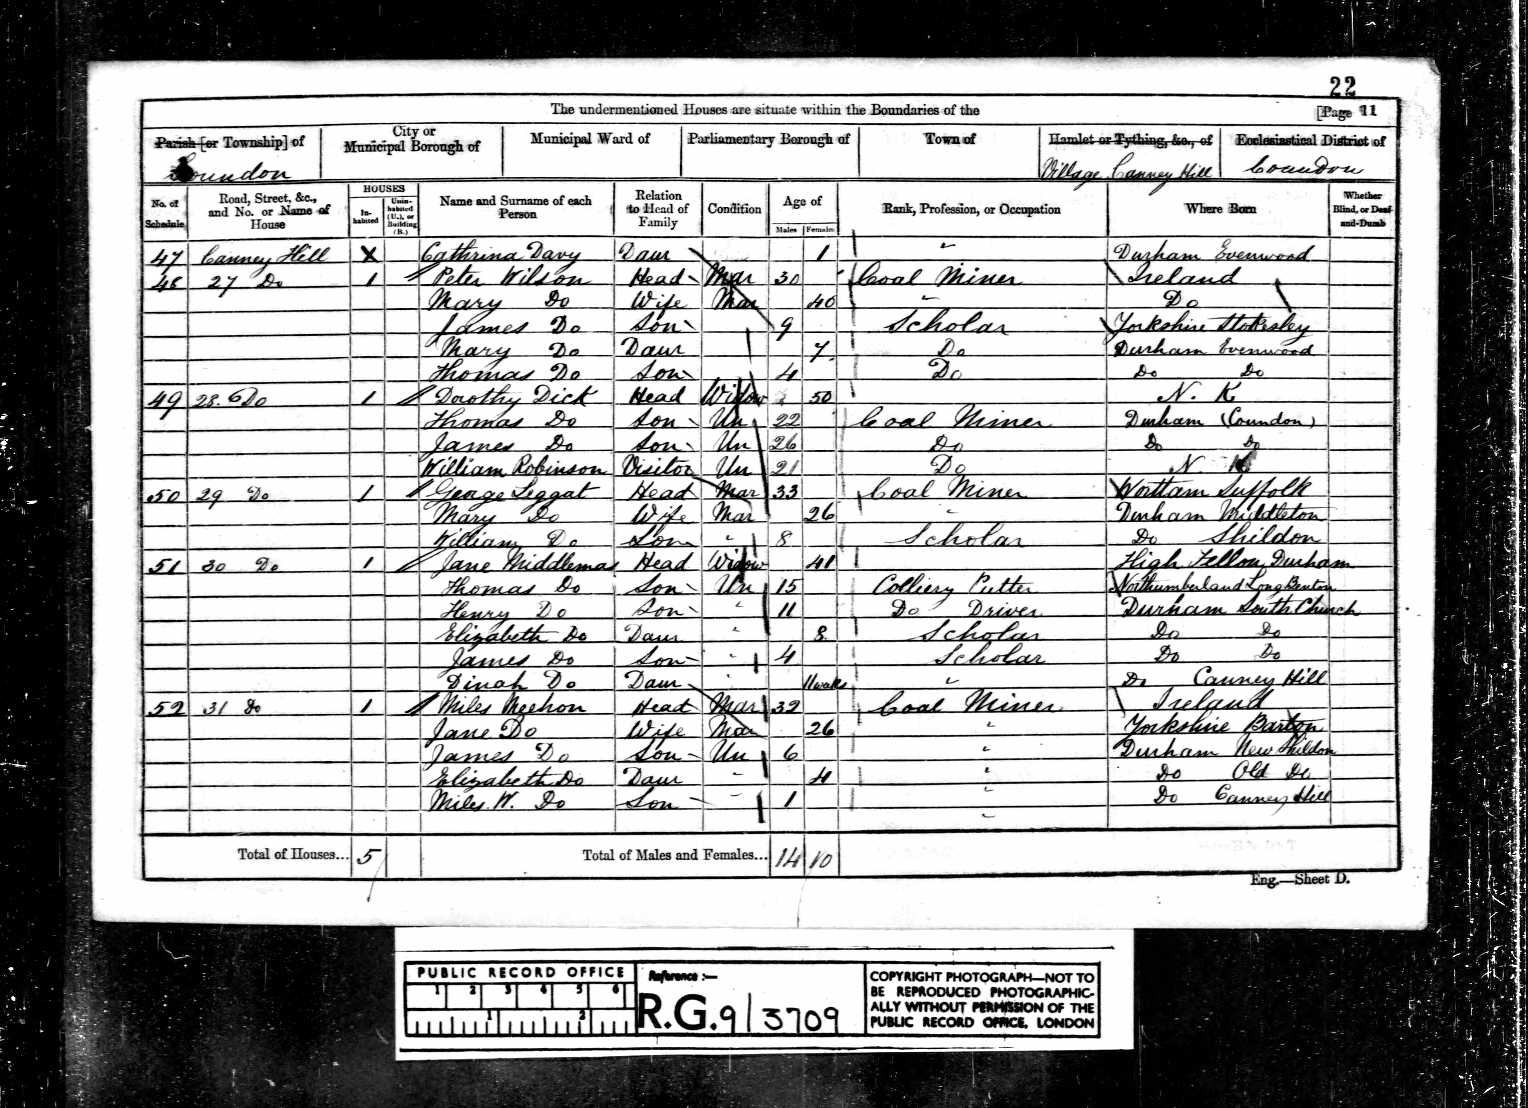 22
The undermentioned Houses are situate within the Boundaries of the [Page 11
Parish [or Township] of City or Municipal Borough of Municipal Ward of Parliamentary Borough of Town of Hamlet or Tything, &c., of Ecclesiastical District of
Coundon Village Canney Hill Coundon
No. of Schedule Road, Street, &c., and No. or Name of House HOUSES Inhabited Uninhabited (U.), or Building (B.) Name and Surname of each Person Relation to Head of Family Condition Age of Males Females Rank, Profession, or Occupation Where Born Whether Blind, or Deaf-and-Dumb
47 Canney Hill X Cathrina Davy Daur 1 " Durham Evenwood
48 27 Do 1 Peter Wilson Head Mar 30 Coal Miner Ireland
Mary Do Wife Mar 40 " Do
James Do Son 9 Scholar Yorkshire Stokesley
Mary Do Daur 7 Do Durham Evenwood
Thomas Do Son 4 Do Do Do
49 28 Do 1 Dorothy Dick Head Widow 50 N. K
Thomas Do Son Un 22 Coal Miner Durham (Coundon)
James Do Son Un 26 Do Do Do
William Robinson Visitor Un 21 Do N K
50 29 Do 1 George Leggat Head Mar 33 Coal Miner Worttam Suffolk
Mary Do Wife Mar 26 " Durham Middleton
William Do Son " 8 Scholar Do Shildon
51 30 Do 1 Jane Middlemas Head Widow 41 High Fellon Durham
Thomas Do Son Un 15 Colliery Putter Northumberland Long Benton
Henry Do Son " 11 Do Driver Durham South Church
Elizabeth Do Daur " 8 Scholar Do Do
James Do Son " 4 Scholar Do Do
Dinah Do Daur " 11 weeks " Do Canney Hill
52 31 Do 1 Miles Meehon Head Mar 32 Coal Miner Ireland
Jane Do Wife Mar 26 " Yorkshire Barton
James Do Son Un 6 " Durham New Shildon
Elizabeth Do Daur " 4 " Do Old Do
Miles W. Do Son " 1 " Do Canney Hill
"
Total of Houses... 5 Total of Males and Females... 14 10
Eng.—Sheet D.
PUBLIC RECORD OFFICE
1 2 3 4 5 6
1 2
Reference :—
R.G. 9/3709
COPYRIGHT PHOTOGRAPH—NOT TO
BE REPRODUCED PHOTOGRAPHIC-
ALLY WITHOUT PERMISSION OF THE
PUBLIC RECORD OFFICE, LONDON